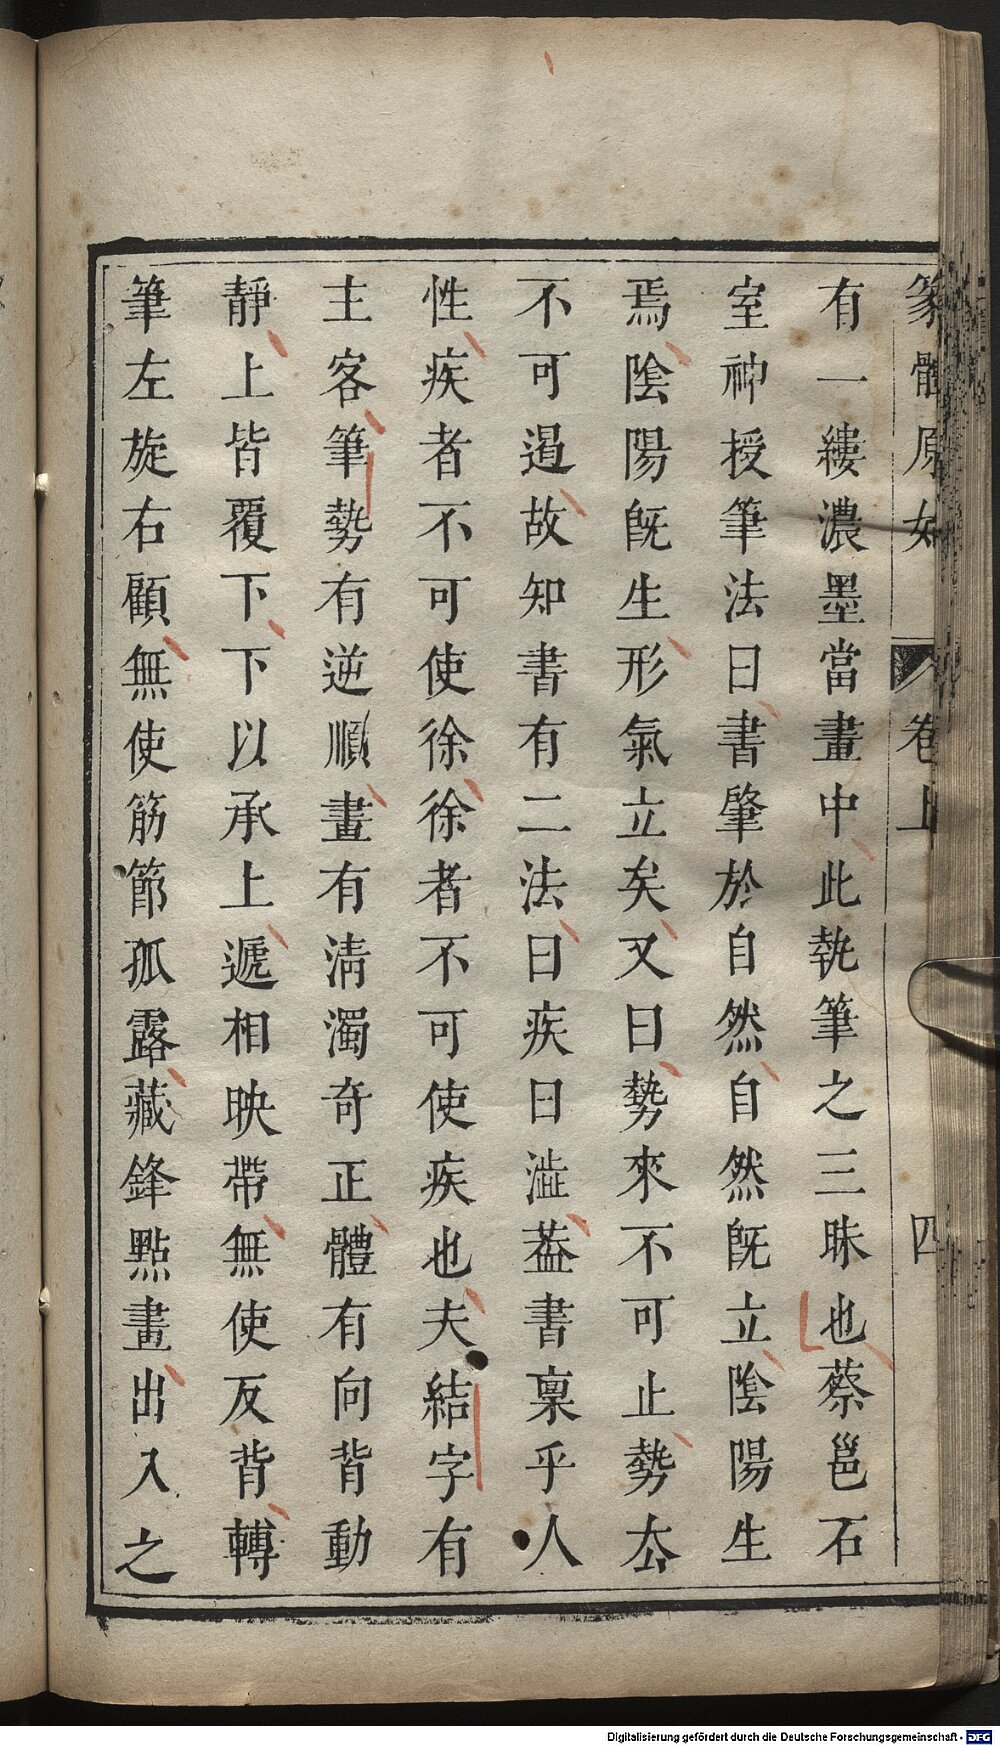 篆體原始 卷上 四
有一縷濃墨當畫中此執筆之三昧也蔡邕石
室神授筆法曰書肇於自然自然旣立陰陽生
焉陰陽旣生形氣立矣又曰勢來不可止勢厺
不可遏故知書有二法曰疾曰澁葢書稟乎人
性疾者不可使徐徐者不可使疾也夫結字有
主客筆勢有逆順畫有淸濁奇正體有向背動
靜上皆覆下下以承上遞相映帶無使反背轉
筆左旋右顧無使筋節孤露藏鋒點畫出入之
Digitalisierung gefördert durch die Deutsche Forschungsgemeinschaft - DFG